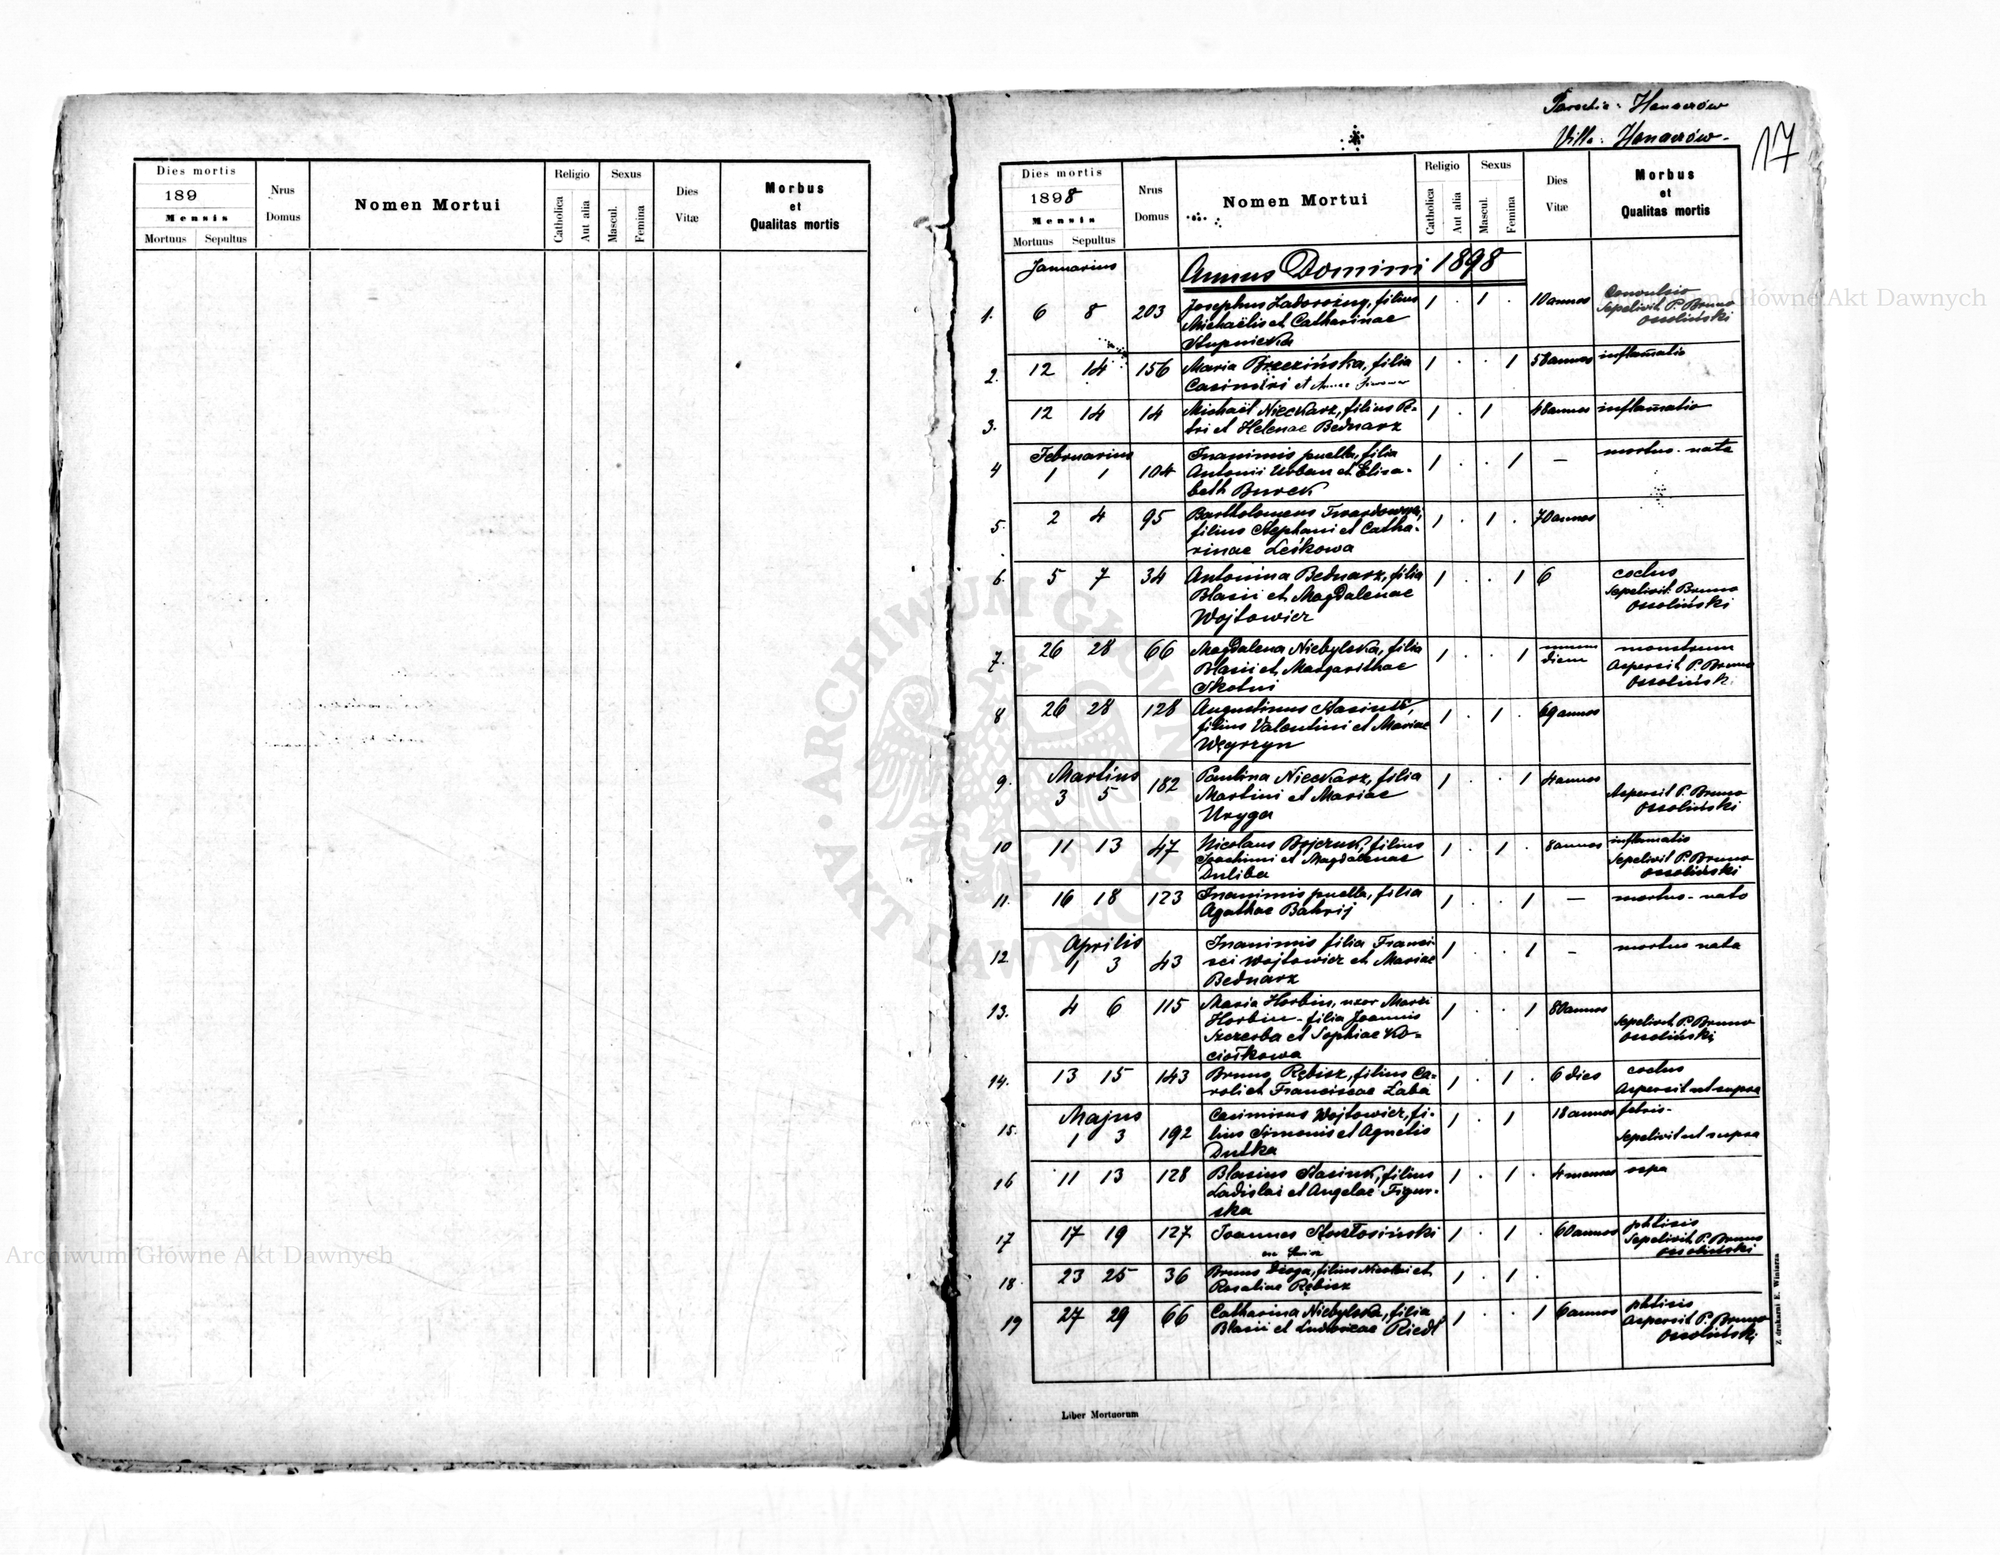 Dies mortis
189
Mensis
Mortuus Sepultus
Nrus
Domus
Nomen Mortui
Religio
Catholica
Aut alia
Sexus
Mascul.
Femina
Dies
Vitæ
Morbus
et
Qualitas mortis
Parochia: Hanaczów
Villa: Hanaczów
17
Dies mortis
1898
Mensis
Mortuus Sepultus
Nrus
Domus
Nomen Mortui
Religio
Catholica
Aut alia
Sexus
Mascul.
Femina
Dies
Vitæ
Morbus
et
Qualitas mortis
Januarius Annus Domini 1898
1. 6 8 203 Josephus Zadorożny, filius 1 . 1 . 10 annos Convulsio
Michaëlis et Catharinae Sepelivit P. Bruno
Stupnicka Ossoliński
2. 12 14 156 Maria Brzezińska, filia 1 . . 1 58 annos inflamatio
Casimiri et Annae
3. 12 14 14 Michaël Nieckarz, filius Pe- 1 . 1 48 annos inflamatio
tri et Helenae Bednarz
Februarius
4 1 1 104 Inanimis puella, filia 1 . . 1 — mortua-nata
Antonii Urban et Elisa-
beth Burek
5. 2 4 95 Bartholomeus 1 . 1 . 70 annos
filius Stephani et Catha-
rinae Leśkowa
6. 5 7 34 Antonina Bednarz, filia 1 . . 1 6 coctus
Blasii et Magdalenae Sepelivit P. Bruno
Wojtowicz Ossoliński
7. 26 28 66 Magdalena Niebylska, filia 1 . . 1 unum diem monstrum
Blasii et Margarithae Aspersit P. Bruno
Skotni Ossoliński
8 26 28 128 Augustinus Stasiuk, 1 . 1 . 69 annos
filius Valentini et Mariae
Węgrzyn
Martius
9. 3 5 182 Paulina Nieckarz, filia 1 . . 1 4 annos
Martini et Mariae Aspersit P. Bruno
Uryga Ossoliński
10 11 13 47 Nicolaus Bojczuk, filius 1 . 1 . 8 annos inflamatio
Joachimi et Magdalenae Sepelivit P. Bruno
Duliba Ossoliński
11. 16 18 123 Inanimis puella, filia 1 . . 1 — mortus-nato
Agathae Bahrij
Aprilis
12 1 3 43 Inanimis filia Franci- 1 . . 1 – mortua nata
sci Wojtowicz et Mariae
Bednarz
13. 4 6 115 Maria Horbin, uxor Marci 1 . . 1 80 annos
Horbin - filia Joannis Sepelivit P. Bruno
Szczerba et Sophiae Ko- Ossoliński
ciołkowa
14. 13 15 143 Bruno Rębisz, filius Ca- 1 . 1 . 6 dies coctus
roli et Franciscae Laba Aspersit ut supra
Majus
15. 1 3 192 Casimirus Wojtowicz, fi- 1 . 1 18 annos febris-
lius Simonis et Agnetis Sepelivit ut supra
Dutka
16 11 13 128 Blasius Stasiuk, filius 1 . 1 . 4 menses
Ladislai et Angelae Figur-
ska
17 17 19 127 Joannes Stoktosiński 1 . 1 . 60 annos phtisis
Sepelivit P. Bruno
Ossoliński
18. 23 25 36 Bruno filius Nicolai et 1 . 1 .
Rosaliae Rębisz
19 27 29 66 Catharina Niebylska, filia 1 . . 1 6 annos phtisis
Blasii et Ludovicae Riedl Aspersit P. Bruno
Ossoliński
Z drukarni E. Winiarza
Liber Mortuorum
Archiwum Główne Akt Dawnych
Archiwum Główne Akt Dawnych
ARCHIWUM GŁÓWNE AKT DAWNYCH